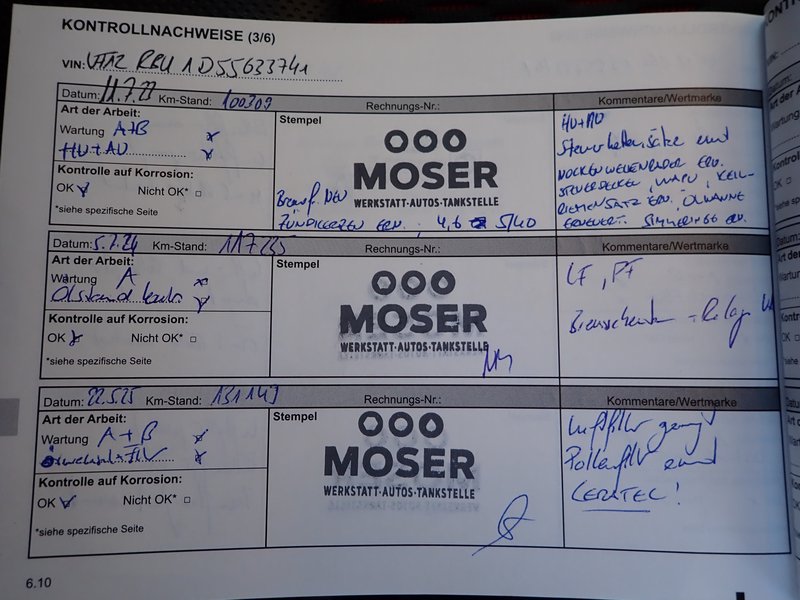 KONTROLLNACHWEISE (3/6)
VIN:
Datum: 11.7.23 Km-Stand: 100309 Rechnungs-Nr.: Kommentare/Wertmarke
Art der Arbeit:
Wartung A+B
HU+AU
Kontrolle auf Korrosion:
OK Nicht OK*
*siehe spezifische Seite
Stempel
MOSER
WERKSTATT·AUTOS·TANKSTELLE
NEU
ZÜNDKERZEN ERN. ; 4,6 5/40
HU+AU
Steuerkettensätze und
NOCKENWELLENRÄDER ERN.
STEUERDECKEL, WAPU, KEIL-
RIEMENSATZ ERN., ÖLWANNE
ERNEUERT. SIMMERINGE ERN.
Datum: 5.7.24 Km-Stand: 117235 Rechnungs-Nr.: Kommentare/Wertmarke
Art der Arbeit:
Wartung A
Ölstand
Kontrolle auf Korrosion:
OK Nicht OK*
*siehe spezifische Seite
Stempel
MOSER
WERKSTATT·AUTOS·TANKSTELLE
LF, PF
Datum: 22.5.25 Km-Stand: 131143 Rechnungs-Nr.: Kommentare/Wertmarke
Art der Arbeit:
Wartung A+B
Kontrolle auf Korrosion:
OK Nicht OK*
*siehe spezifische Seite
Stempel
MOSER
WERKSTATT·AUTOS·TANKSTELLE
Luftfilter
Pollenfilter
CERATEC!
6.10